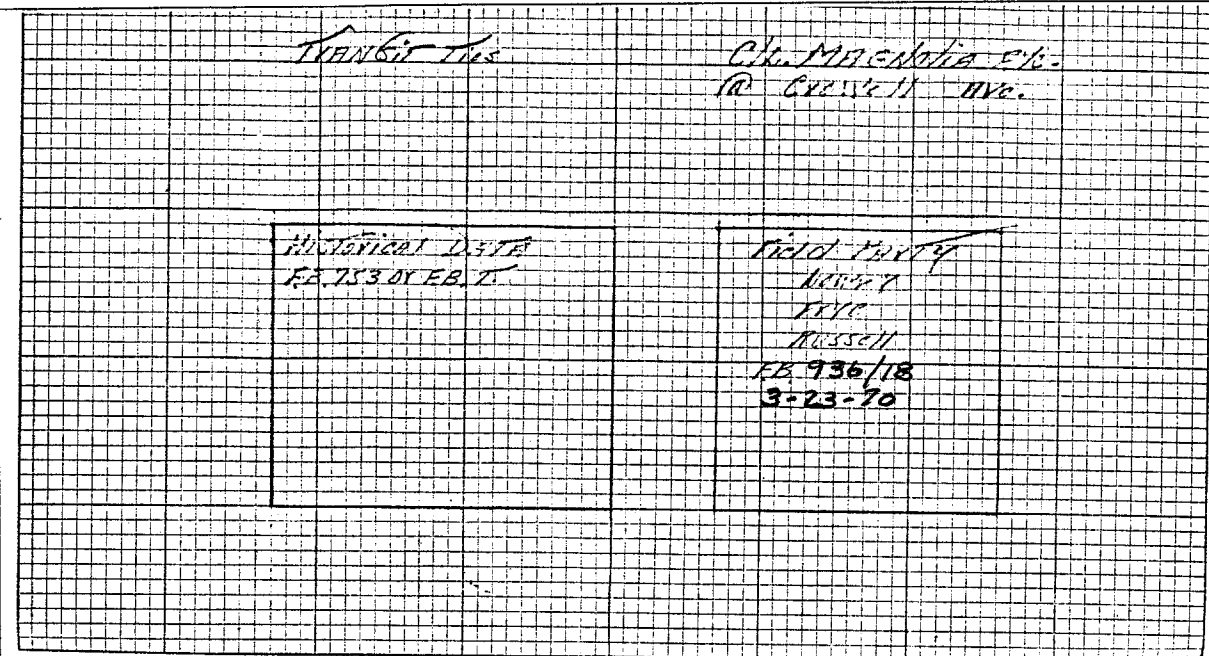 Transit Ties
C/L Magnolia
@ Ave.
Historical Data
F.B. 753 or F.B. T.
Field Party
Frye
Russell
F.B. 936/18
3-23-70